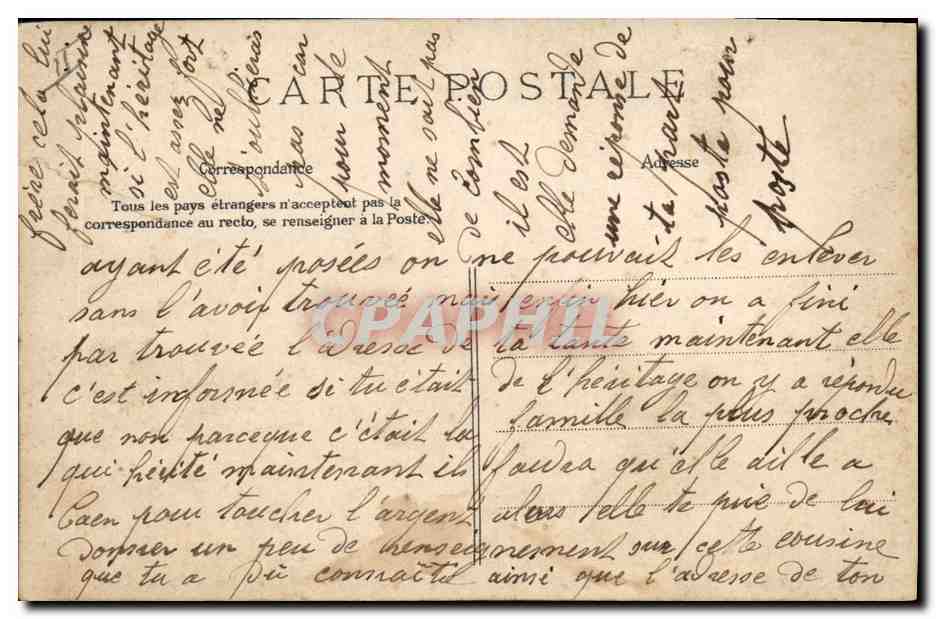 CARTE POSTALE
Correspondance
Adresse
Tous les pays étrangers n'acceptent pas la
correspondance au recto, se renseigner à la Poste.
ayant été posées on ne pouvait les enlever
sans l'avoir trouvée mais enfin hier on a fini
par trouvée l'adresse de ta tante maintenant elle
c'est informée si tu était de l'héritage on y a répondu
que non parceque c'était la famille la plus proche
qui hérité maintenant il faudra qu'elle aille a
Caen pour toucher l'argent alors elle te prie de lui
donner un peu de renseignement sur cette cousine
que tu a pû connaitre ainsi que l'adresse de ton
frère cela lui
ferait plaisir
maintenant
si l'héritage
est assez fort
elle ne
t'oublierais
pas car
pour le
moment
elle ne sait pas
de combien
il est
elle demande
une réponse de
ta part
poste pour
poste
CPAPHIL